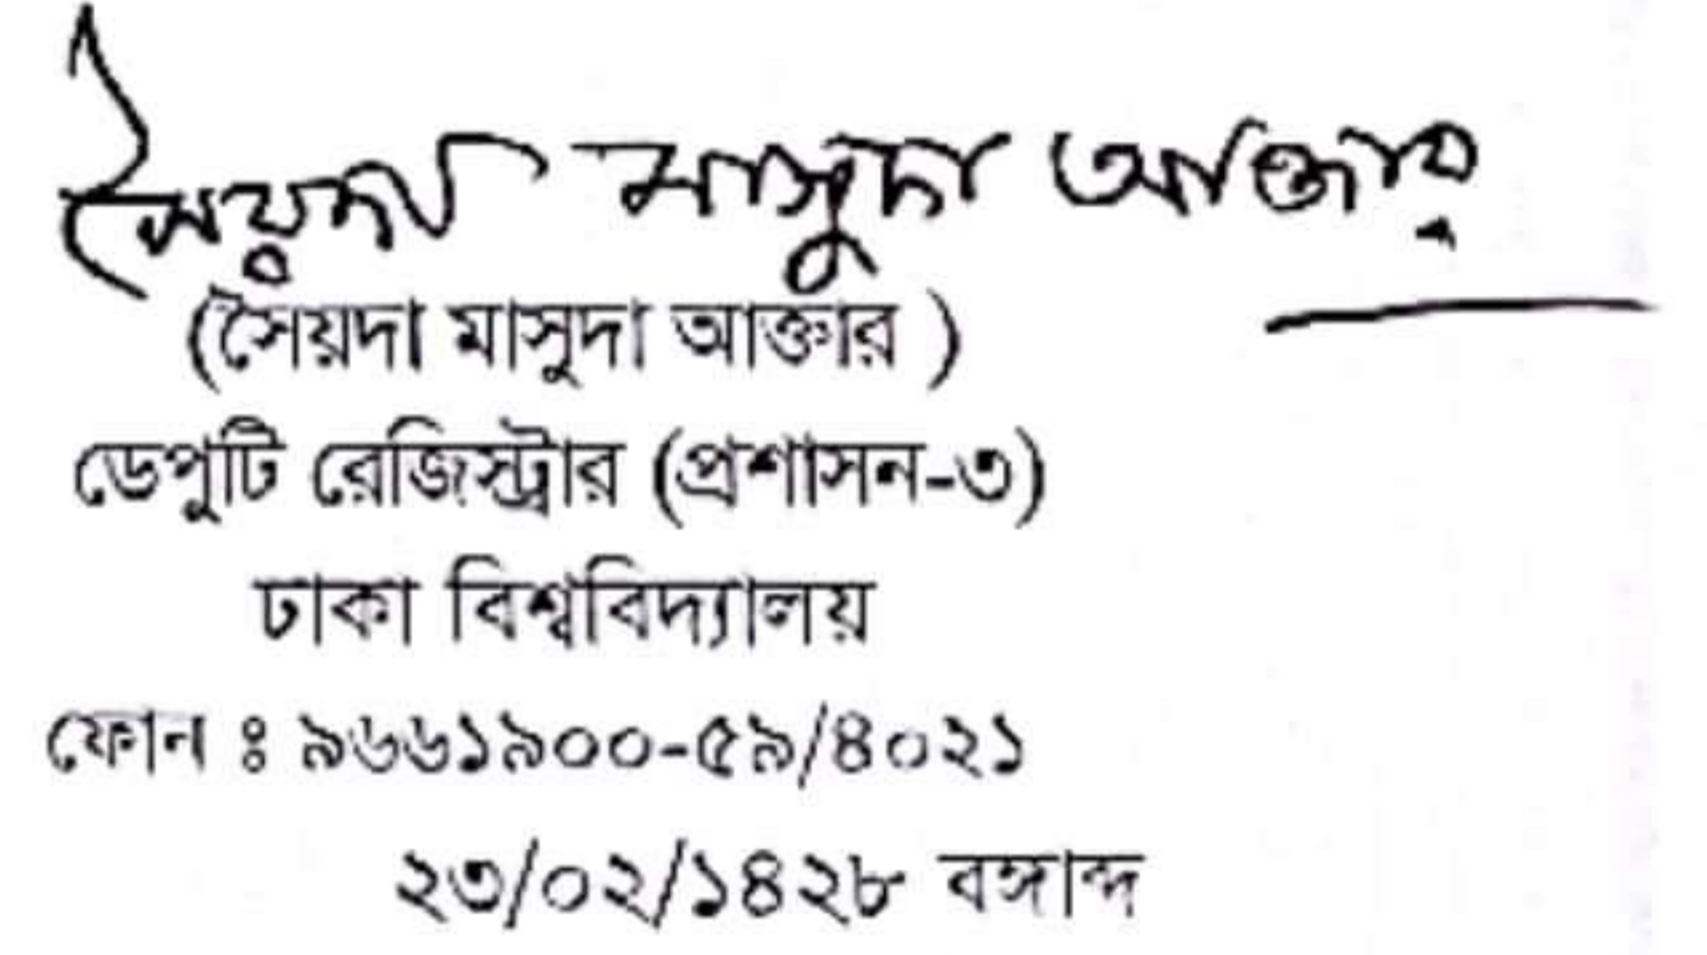 সৈয়দা মাসুদা আক্তার
(সৈয়দা মাসুদা আক্তার )
ডেপুটি রেজিস্ট্রার (প্রশাসন-৩)
ঢাকা বিশ্ববিদ্যালয়
ফোন ঃ ৯৬৬১৯০০-৫৯/৪০২১
২৩/০২/১৪২৮ বঙ্গাব্দ